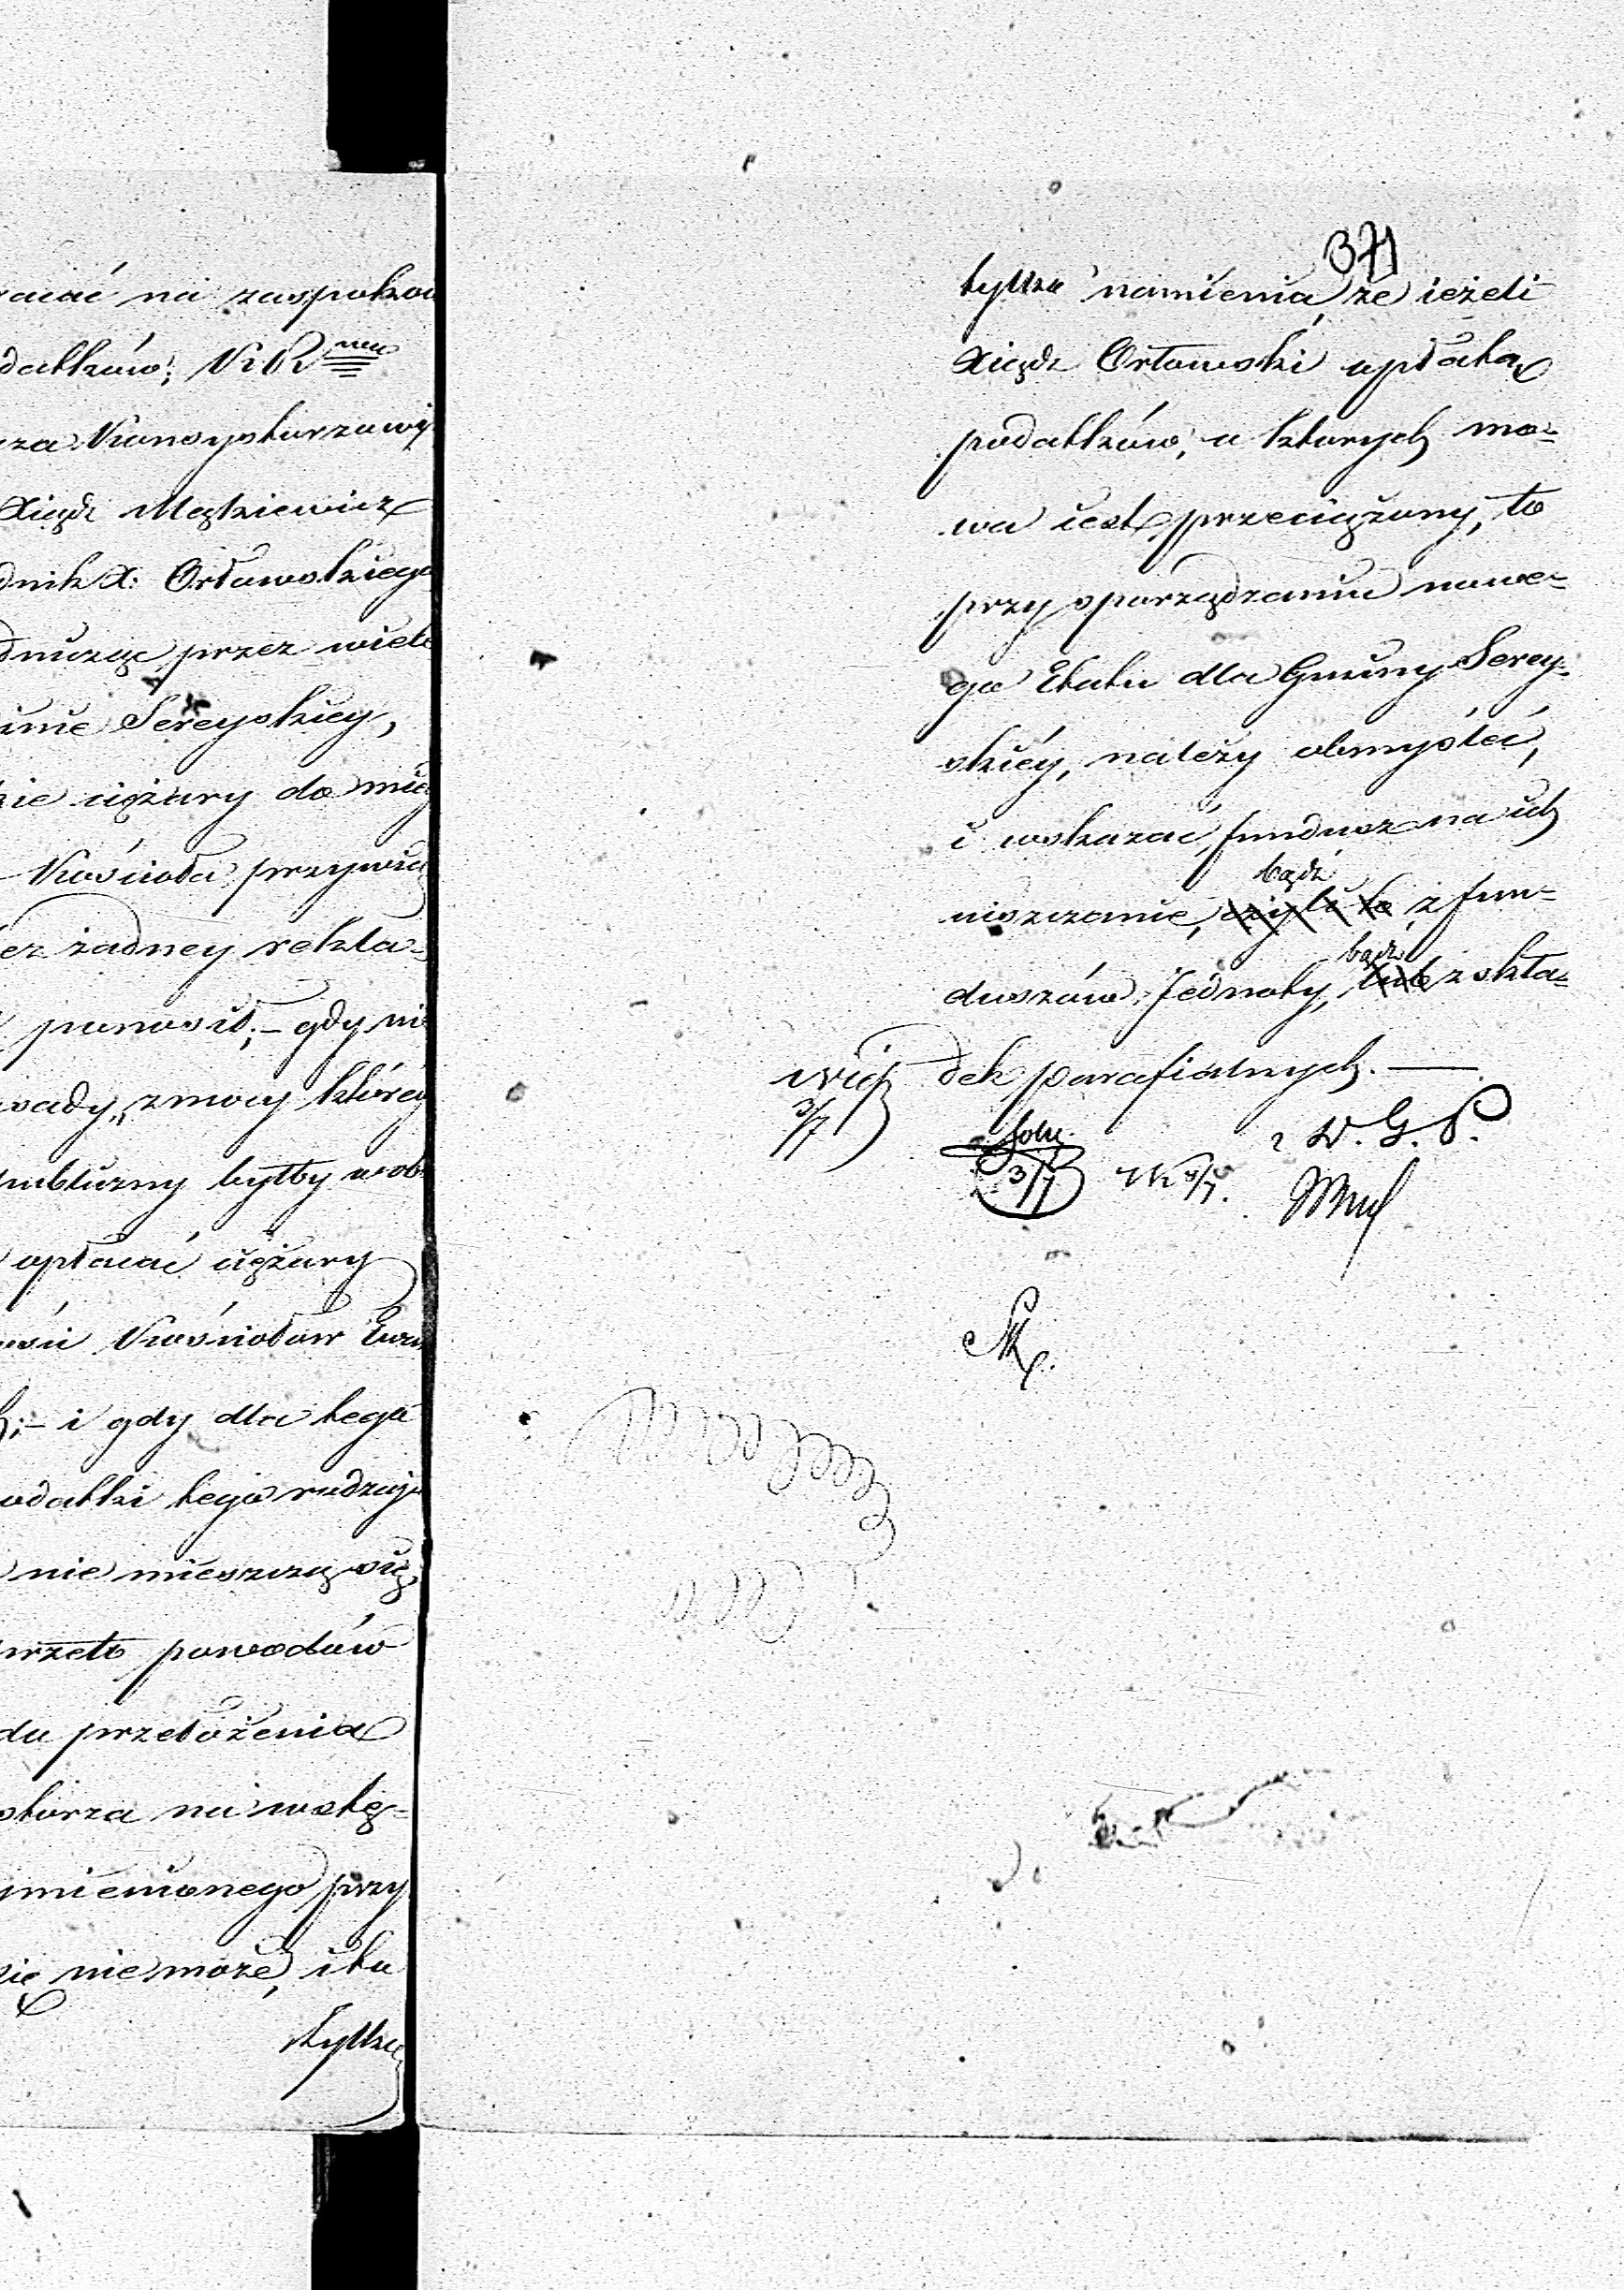 racać na zaspokoi
datków; K. R
za Konsystorzowi
Xiądz Mackiewicz
dnik X. Orłowskiego
przez wiele
Sereyskiey,
kie ciężary do
Kościoła przywią
ez żadney rekla-
ponosił; – gdy ni
sady,, z mocy którey
byłby
opłacać ciężary
Kościołów
i gdy dla tego
odatki tego rodzaju
nie mieszczą się,
przeto powodów
du przełożenia
storza na wstę-
ymienionego przy
nie może, i tu
tylko
371
tylko namienia, że ieżeli
Xiądz Orłowski opłatą
podatków, o których mo-
wa iest przeciążony, to
przy sporządzaniu nowe-
go Etatu dla Gminy Serey-
skiéy, należy obmyśleć,
i wskazać fundusz na ich
bądź
uiszczanie, czyli to z fun-
bądź
duszów Jednoty, lub z skła-
dek parafialnych. —
3/7
3/7
D. G. P.